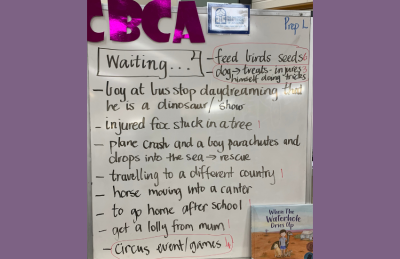 CBCA
Prep L
Waiting...?
- feed birds seeds
- dog → treats - injures
himself doing tricks
- boy at bus stop daydreaming that
he is a dinosaur / show
- injured fox stuck in a tree
- plane crash and a boy parachutes and
drops into the sea → rescue
- travelling to a different country
- horse moving into a canter
- to go home after school
- get a lolly from mum
- circus event/games
When The
Waterhole
Dries Up